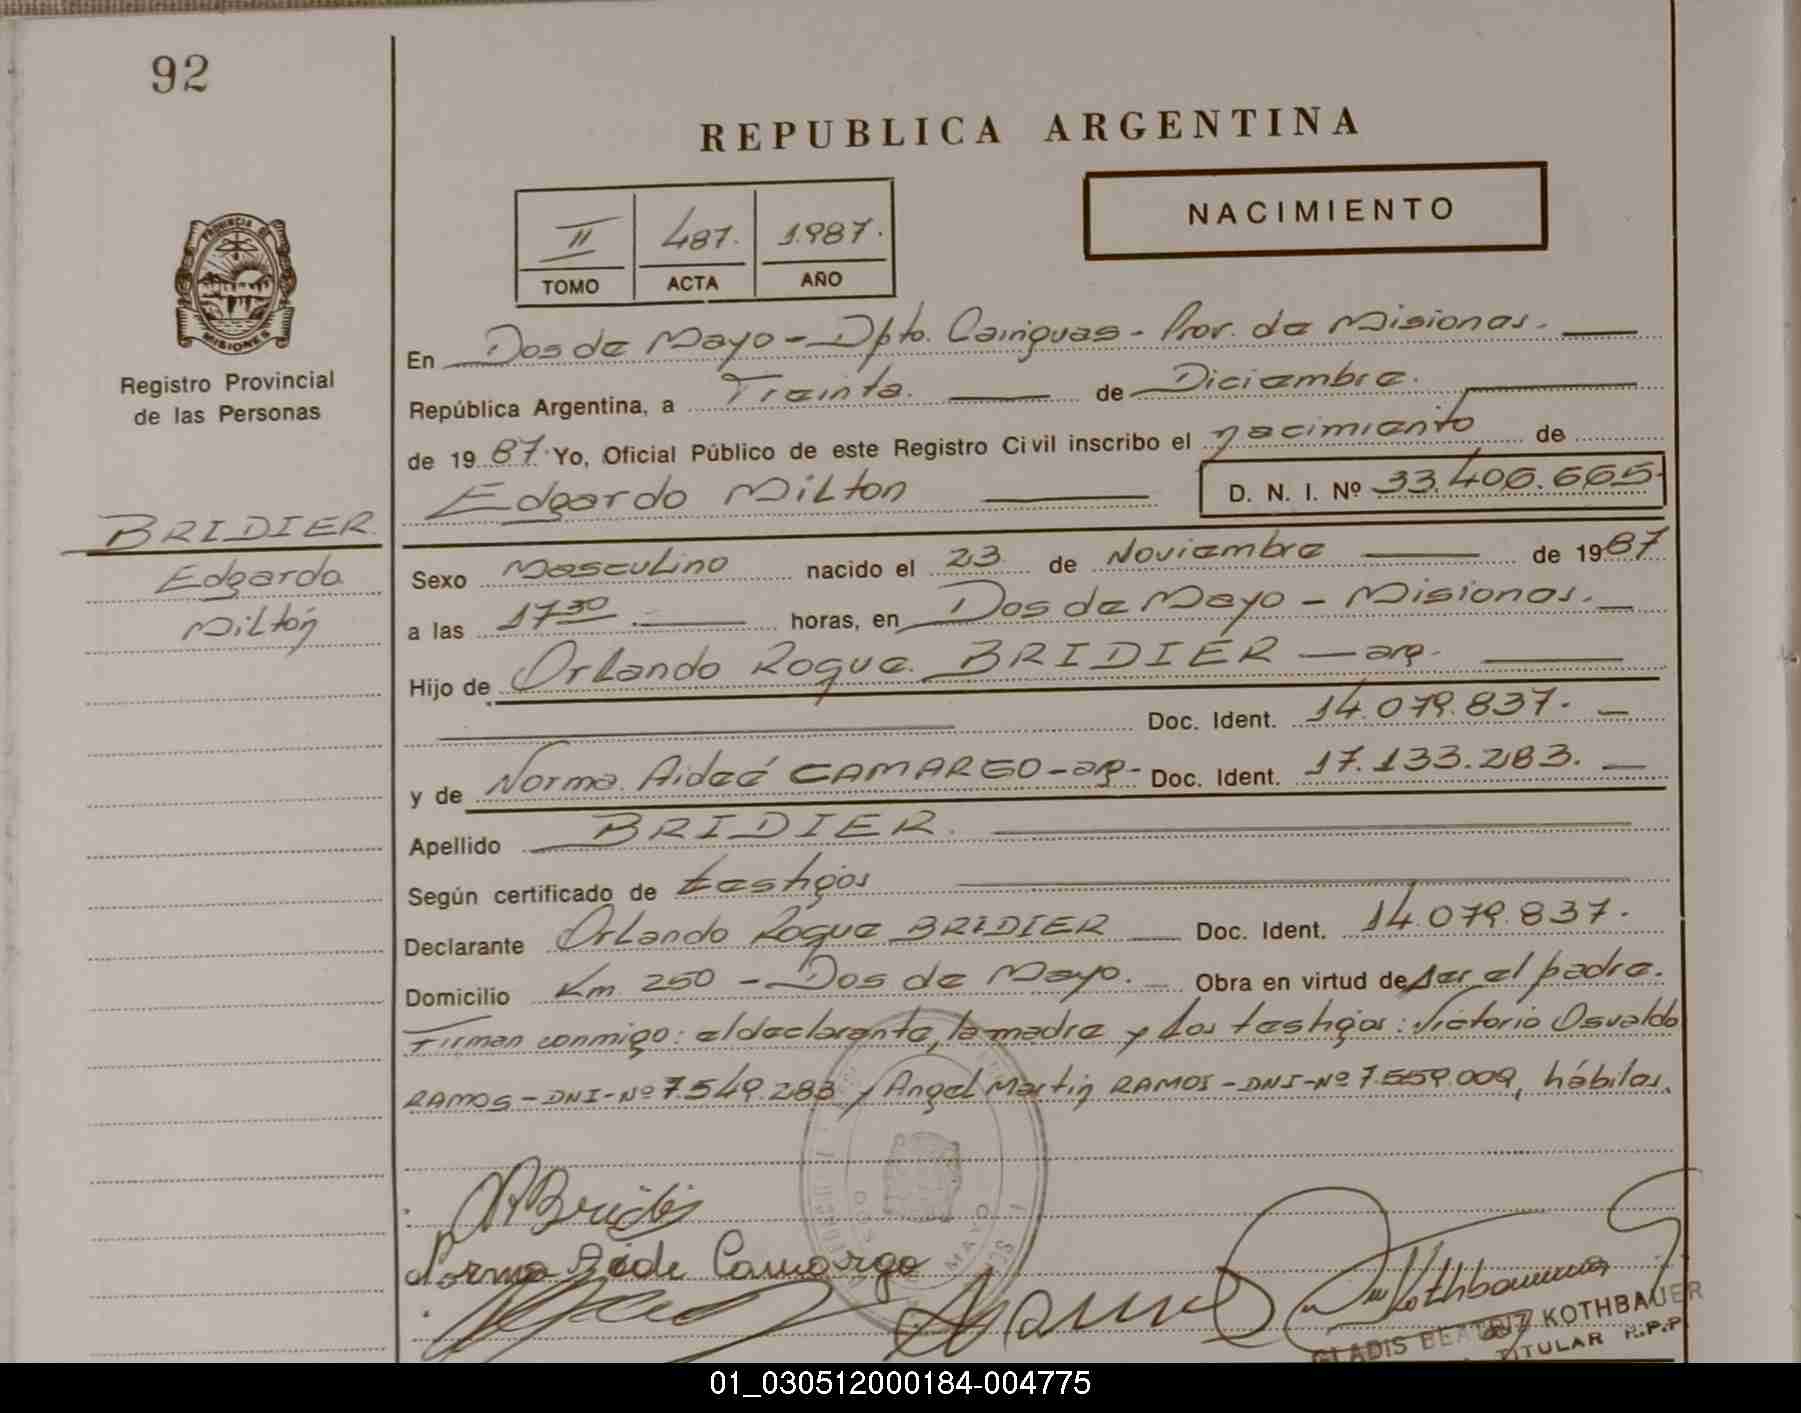 92
REPUBLICA ARGENTINA
NACIMIENTO
II 487. 1.987.
TOMO ACTA AÑO
PROVINCIA DE
MISIONES
Registro Provincial
de las Personas
En Dos de Mayo - Dpto. Cainguas - Prov. de Misiones.
República Argentina, a Treinta. de Diciembre.
de 19 87. Yo, Oficial Público de este Registro Civil inscribo el nacimiento de
Edgardo Milton D. N. I. Nº 33.406.665.
BRIDIER
Edgardo
Miltón
Sexo Masculino nacido el 23 de Noviembre de 19 87
a las 17 30 horas, en Dos de Mayo - Misiones.
Hijo de Orlando Roque BRIDIER - arg.
Doc. Ident. 14.079.837.
y de Norma Aideé CAMARGO - arg - Doc. Ident. 17.133.283.
Apellido BRIDIER.
Según certificado de testigos
Declarante Orlando Roque BRIDIER Doc. Ident. 14.079.837.
Domicilio Km 250 - Dos de Mayo. Obra en virtud de ser el padre.
Firman conmigo: el declarante, la madre y los testigos: Victorio Osvaldo
RAMOS - DNI - Nº 7.549.283 y Angel Martin RAMOS - DNI - Nº 7.559.009, hábiles.
Norma Aide Camargo
GLADIS BEATRIZ KOTHBAUER
TITULAR R.P.P.
01_030512000184-004775